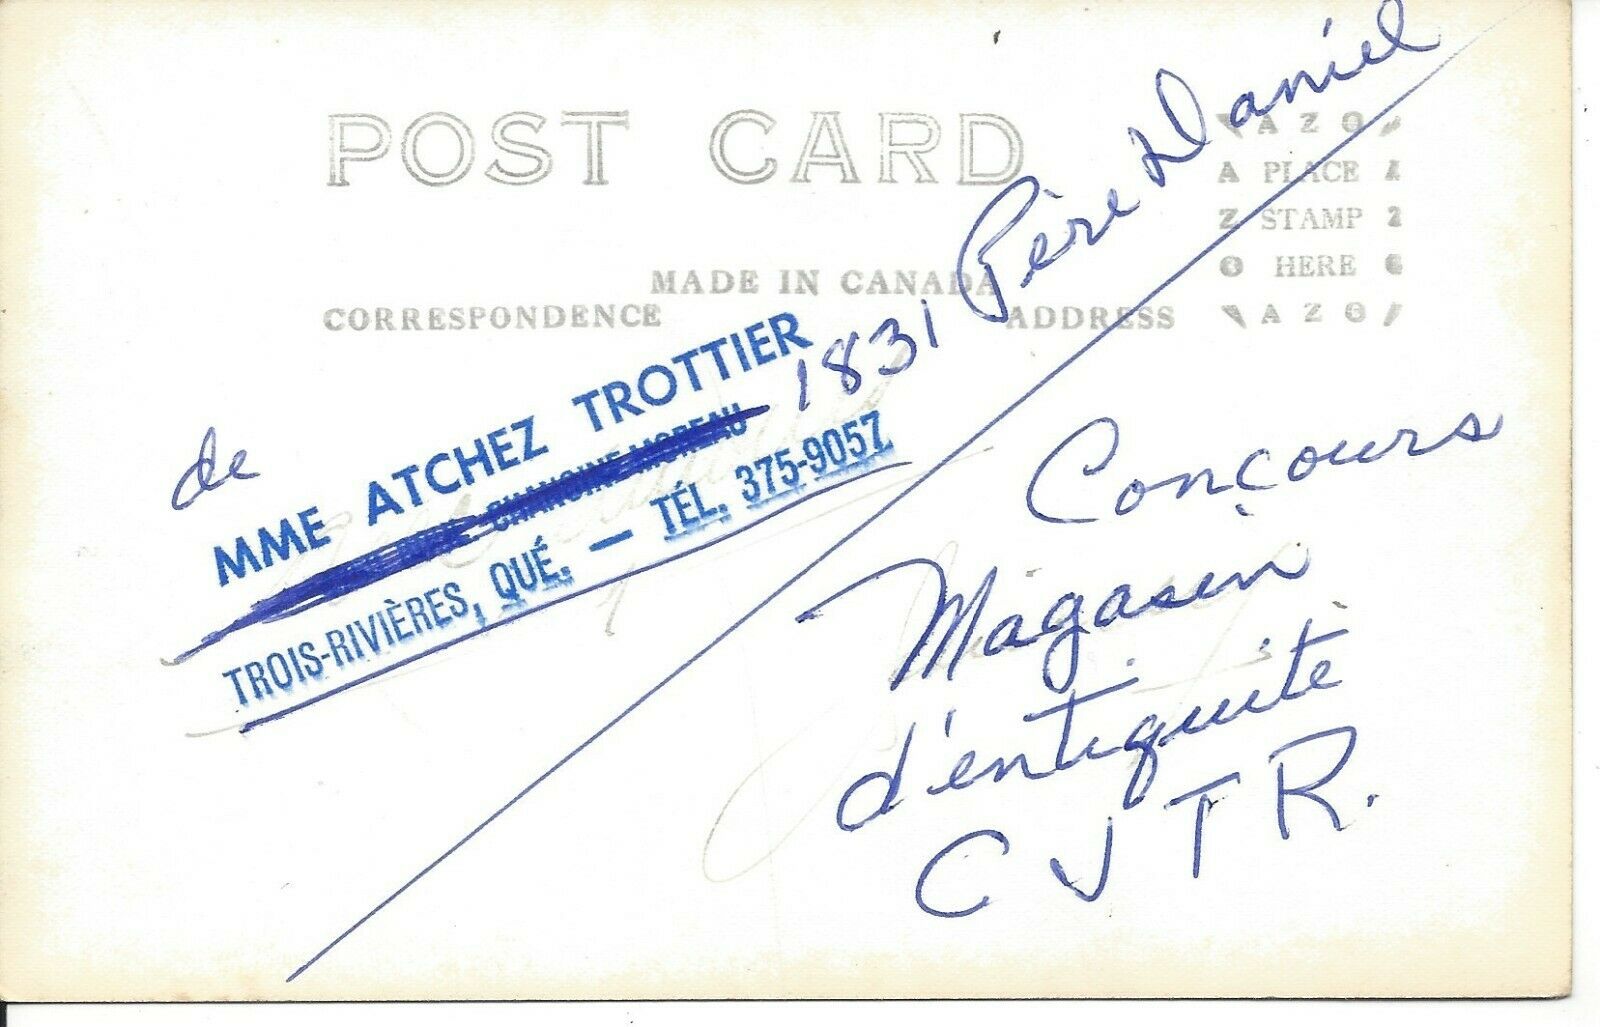 POST CARD
MADE IN CANADA
CORRESPONDENCE
ADDRESS
AZO
A PLACE
Z STAMP Z
O HERE
AZO
de
MME ATCHEZ TROTTIER
1831 Père Daniel
CHANOINE-MOREAU
TROIS-RIVIÈRES, QUÉ. — TÉL. 375-9057
Conçours
Magasin
d'entiquité
CJTR.